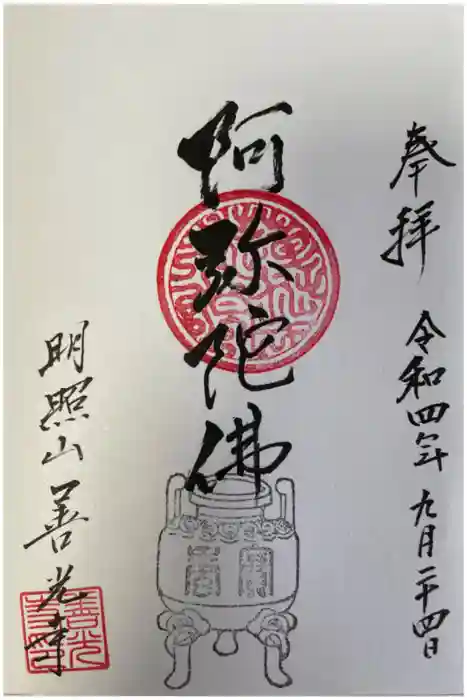 奉拝 令和四年 九月二十四日
阿弥陀佛
明照山 善光寺
善光寺